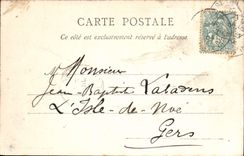 CARTE POSTALE
Ce côté est exclusivement réservé à l'adresse
Monsieur
Jean-Baptist
L'Isle-de-Noé
Gers